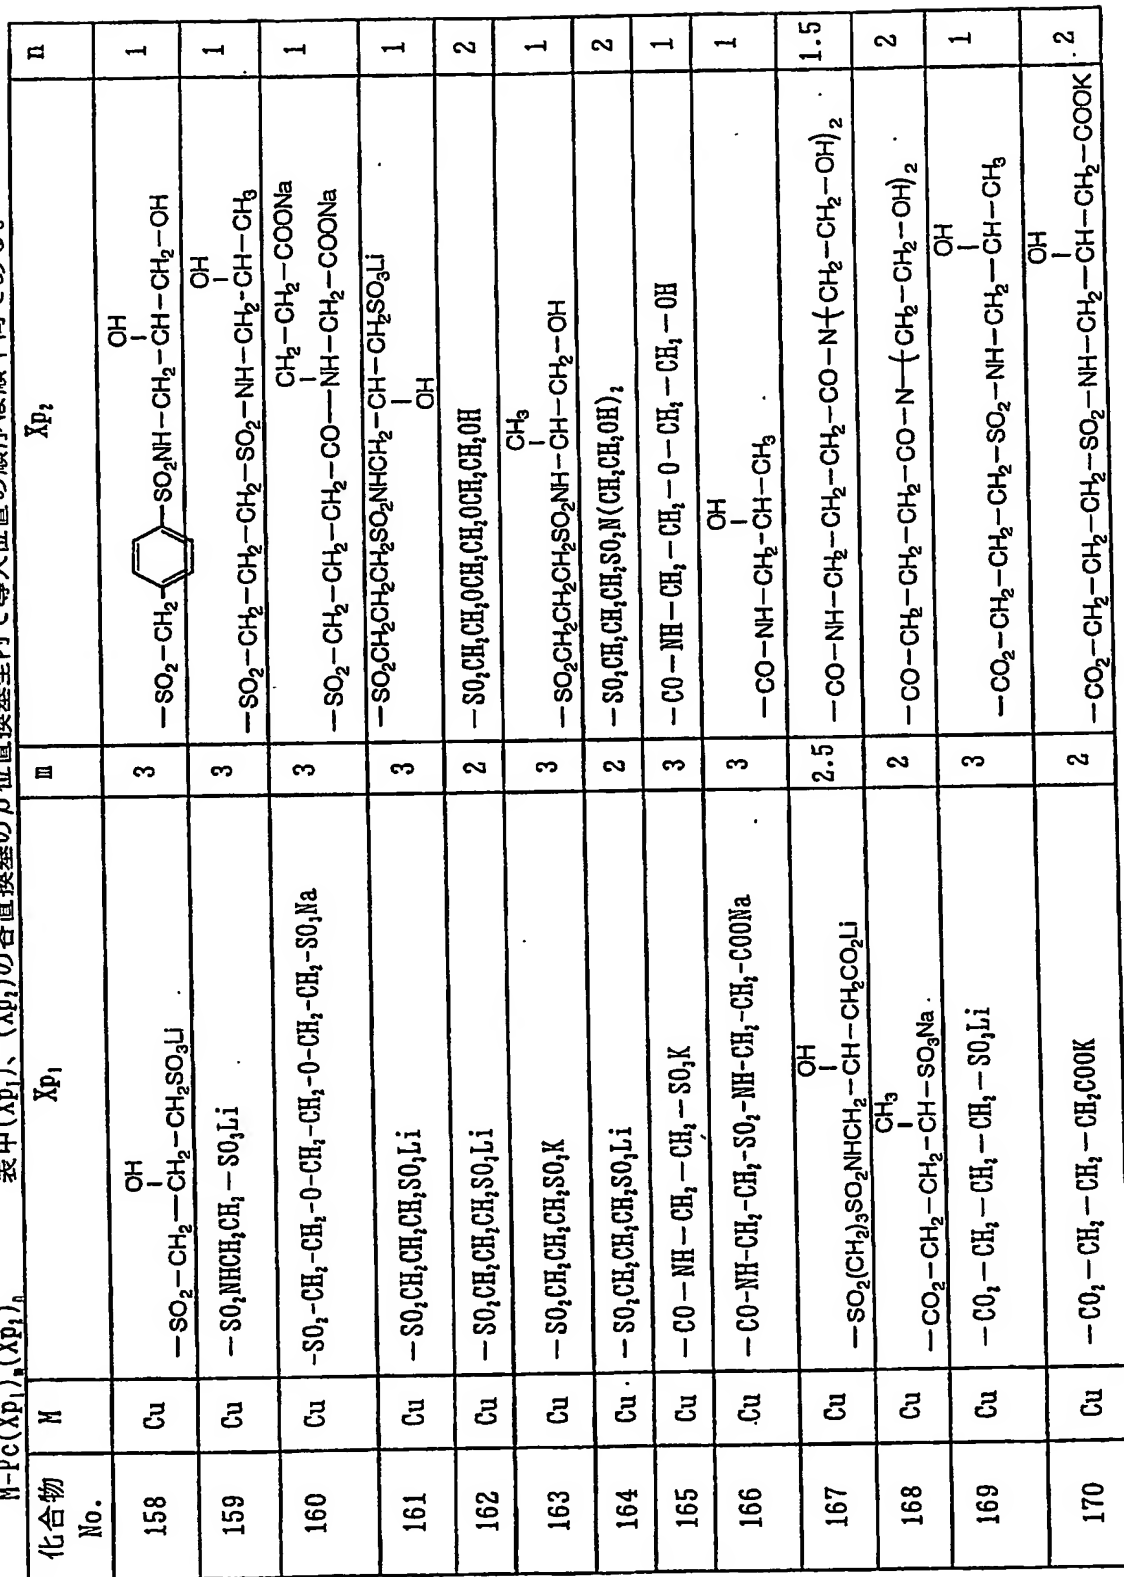 M-Pc(Xp₁)ₘ(Xp₂)ₙ 表中(Xp₁)、(Xp₂)の各置換基のβ位置換基型内で導入位置の順序は順不同である。
化合物 No. M Xp₁ m Xp₂ n
158 Cu —SO₂—CH₂—CH₂(OH)—CH₂SO₃Li 3 —SO₂—CH₂—⌬—SO₂NH—CH₂—CH(OH)—CH₂—OH 1
159 Cu —SO₂NHCH₂CH₂—SO₃Li 3 —SO₂—CH₂—CH₂—CH₂—SO₂—NH—CH₂-CH(OH)—CH₃ 1
160 Cu -SO₂-CH₂-CH₂-O-CH₂-CH₂-O-CH₂-CH₂-SO₃Na 3 —SO₂—CH₂—CH₂—CH₂—CO—NH(CH₂—CH₂—COONa)—CH₂—CH₂—COONa 1
161 Cu —SO₂CH₂CH₂CH₂SO₃Li 3 —SO₂CH₂CH₂CH₂SO₂NHCH₂—CH(OH)—CH₂SO₃Li 1
162 Cu —SO₂CH₂CH₂CH₂SO₃Li 2 —SO₂CH₂CH₂OCH₂CH₂OCH₂CH₂OH 2
163 Cu —SO₂CH₂CH₂CH₂SO₃K 3 —SO₂CH₂CH₂CH₂SO₂NH—CH(CH₃)—CH₂—OH 1
164 Cu —SO₂CH₂CH₂CH₂SO₃Li 2 —SO₂CH₂CH₂CH₂SO₂N(CH₂CH₂OH)₂ 2
165 Cu —CO—NH—CH₂—CH₂—SO₃K 3 —CO—NH—CH₂—CH₂—O—CH₂—CH₂—OH 1
166 Cu —CO-NH-CH₂-CH₂-SO₂-NH-CH₂-CH₂-COONa 3 —CO—NH—CH₂—CH(OH)—CH₃ 1
167 Cu —SO₂(CH₂)₃SO₂NHCH₂—CH(OH)—CH₂CO₂Li 2.5 —CO—NH—CH₂—CH₂—CH₂—CO—N(CH₂—CH₂—OH)₂ 1.5
168 Cu —CO₂—CH₂—CH₂—CH(CH₃)—SO₃Na 2 —CO—CH₂—CH₂—CH₂—CO—N(CH₂—CH₂—OH)₂ 2
169 Cu —CO₂—CH₂—CH₂—CH₂—SO₃Li 3 —CO₂—CH₂—CH₂—CH₂—SO₂—NH—CH₂—CH(OH)—CH₃ 1
170 Cu —CO₂—CH₂—CH₂—CH₂COOK 2 —CO₂—CH₂—CH₂—CH₂—SO₂—NH—CH₂—CH(OH)—CH₂—COOK 2